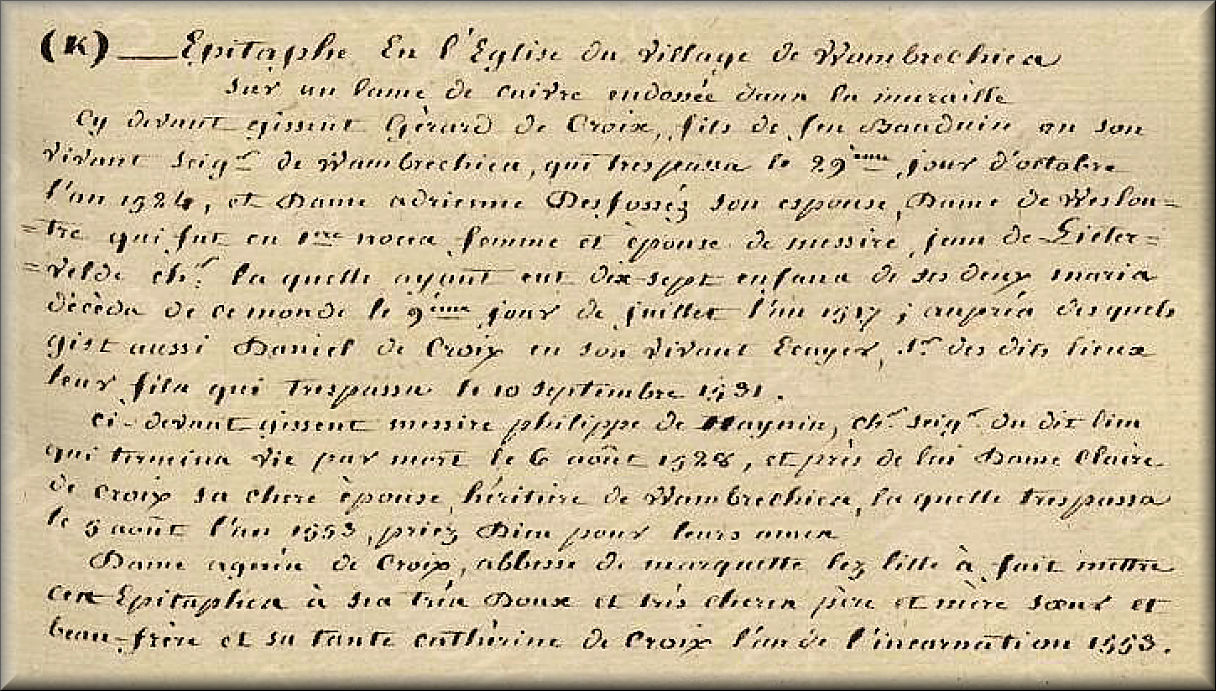 (K) — Epitaphe En l'Eglise du village de Wambrechies
sur un lame de cuivre endossée dans la muraille
Cy devant gissent Gèrard de Croix, fils de feu Bauduin en son
vivant seigr de Wambrechies, qui trespassa le 29ème jour d'octobre
l'an 1524, et Dame adrienne Desfossés son espouse, Dame de Weslou=
=tre qui fut en 1ere noces femme et èpouse de messire jean de Licter=
=velde chr. la quelle ayant eut dix-sept enfans de ses deux maris
dècèda de ce monde le 9ème jour de juillet l'an 1517 ; auprès desquels
gist aussi Daniel de Croix en son vivant Ecuyer, Sr. des dits lieux
leur fils qui trespassa le 10 septembre 1531.
ci-devant gissent messire philippe de Haynin, chr seigr du dit lieu
qui termina vie par mort le 6 août 1528, et près de lui Dame Claire
de croix sa chere èpouse, héritière de Wambrechies, la quelle trespassa
le 5 août l'an 1553, priez Dieu pour leurs ames
Dame agnès de Croix, abbesse de marquette lez lille à fait mettre
ces Epitaphes à ses très Doux et très chers père et mère sœur et
beau-frère et sa tante cathèrine de Croix l'an de l'incarnation 1553.